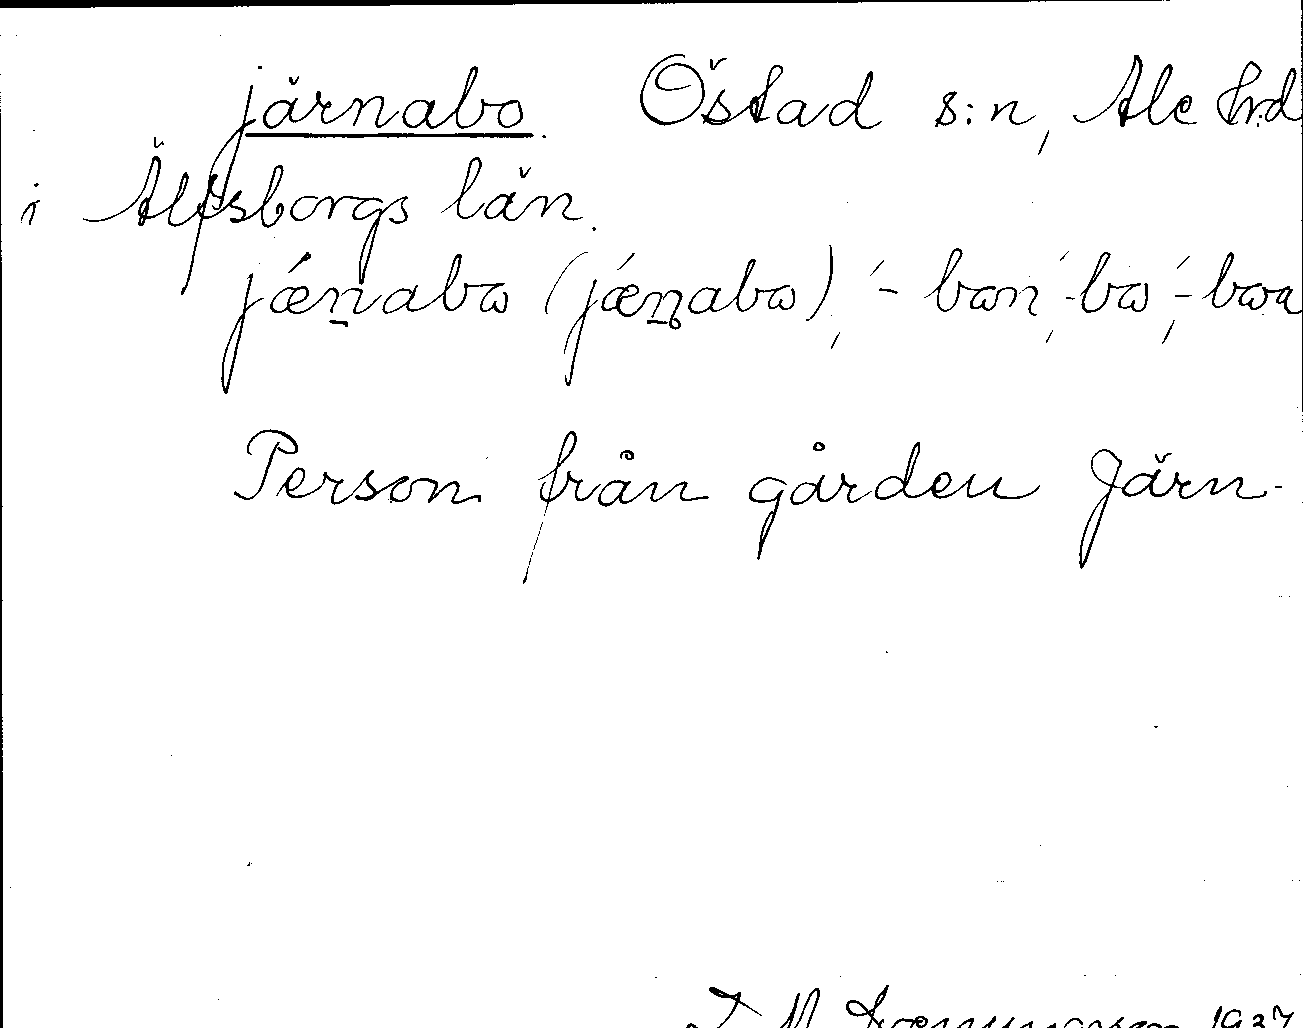 järnabo. Östad s:n, Ale hd
i Älfsborgs län.
jǽn̠abω (jǽn̠abω), ́-bωn, ́-bω, ́-bωa
Person från gården Järn-
1937